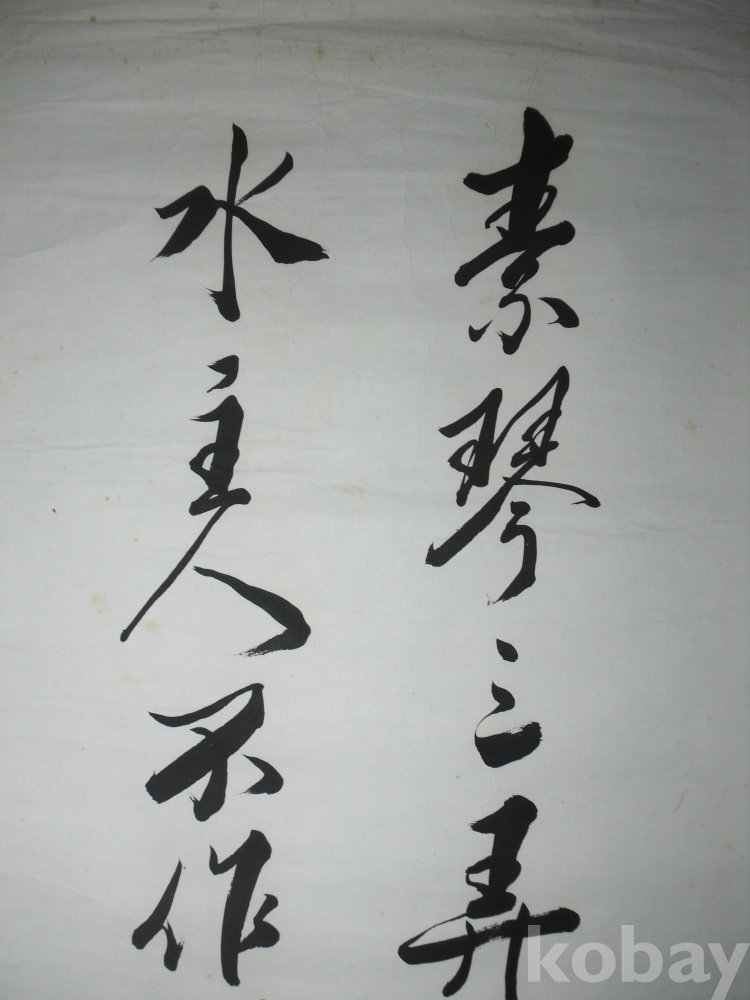 素琴三弄
水主人不作
kobay